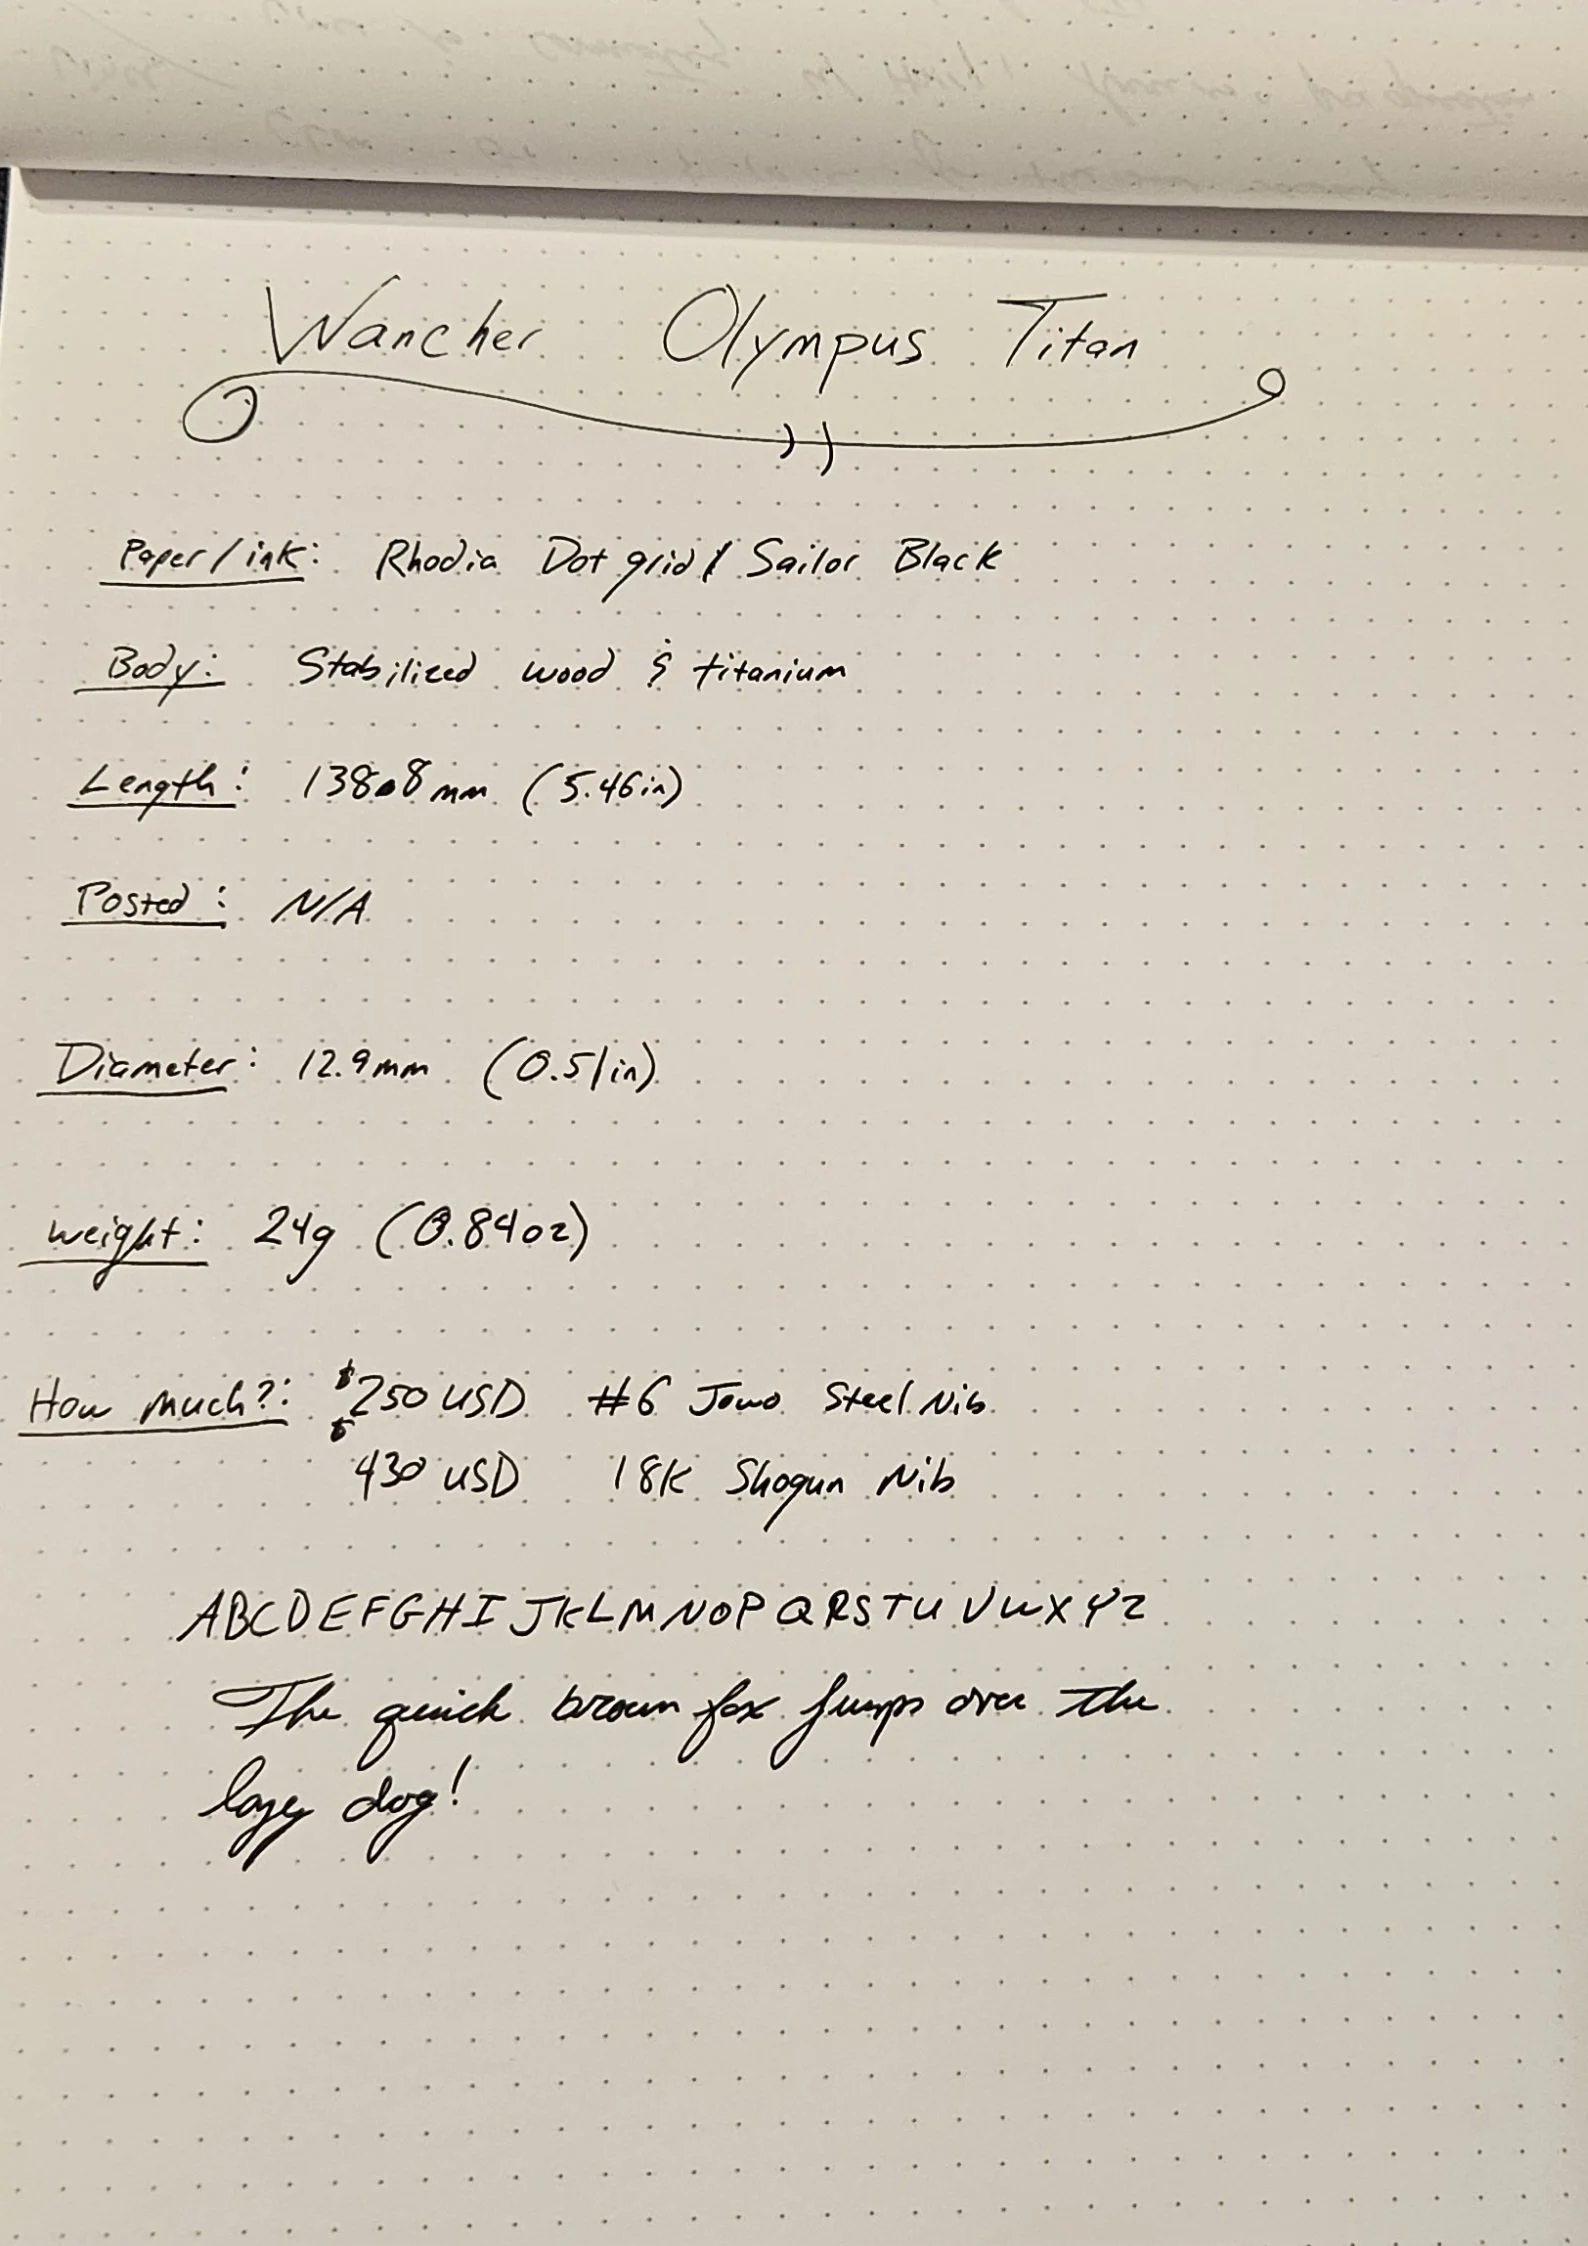 Wancher Olympus Titan
Paper/ink: Rhodia Dot grid / Sailor Black
Body: Stabilized wood & titanium
Length: 138.8mm (5.46in)
Posted: N/A
Diameter: 12.9mm (0.51in)
weight: 24g (0.84oz)
How much?: $250 USD #6 Jowo Steel Nib
$430 USD 18K Shogun Nib
ABCDEFGHIJKLMNOPQRSTUVWXYZ
The quick brown fox jumps over the
lazy dog!